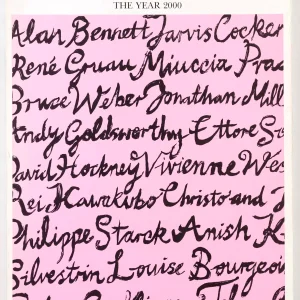 THE YEAR 2000
Alan Bennett Jarvis Cocker
René Gruau Miuccia Prad
Bruce Weber Jonathan Mill
Andy Goldsworthy Ettore So
David Hockney Vivienne Wes
Rei Kawakubo Christo and J
Philippe Starck Anish K
Silvestrin Louise Bourgeoi